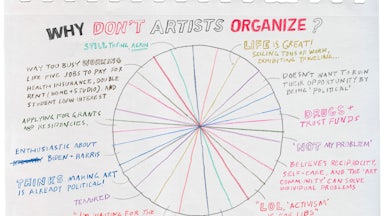 WHY DON'T ARTISTS ORGANIZE?
STILL TRYING AGAIN
LIFE IS GREAT!
SELLING TONS OF WORK,
EXHIBITING, TRAVELING...
WAY TOO BUSY WORKING
LIKE FIVE JOBS TO PAY FOR
HEALTH INSURANCE, DOUBLE
RENT (HOME + STUDIO), AND
STUDENT LOAN INTEREST
DOESN'T WANT TO RUIN
THEIR OPPORTUNITY BY
BEING 'POLITICAL'
APPLYING FOR GRANTS
AND RESIDENCIES.
DRUGS +
TRUST FUNDS
ENTHUSIASTIC ABOUT
BIDEN + HARRIS
'NOT MY PROBLEM'
THINKS MAKING ART
IS ALREADY POLITICAL!
BELIEVES RECIPROCITY,
SELF-CARE, AND THE 'ART
COMMUNITY' CAN SOLVE
INDIVIDUAL PROBLEMS
TENURED
"I'M WAITING FOR THE
"LOL, 'ACTIVISM'
LIBS